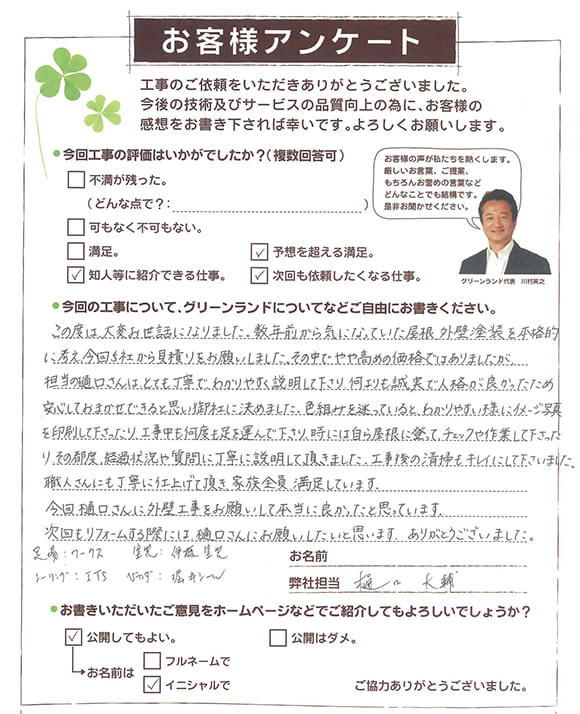 お客様アンケート
工事のご依頼をいただきありがとうございました。
今後の技術及びサービスの品質向上の為に、お客様の
感想をお書き下されば幸いです。よろしくお願いします。
●今回工事の評価はいかがでしたか?(複数回答可)
□不満が残った。
(どんな点で?: )
□可もなく不可もない。
□満足。
☑予想を超える満足。
☑知人等に紹介できる仕事。
☑次回も依頼したくなる仕事。
お客様の声が私たちを熱くします。
厳しいお言葉、ご提案、
もちろんお誉めの言葉など
どんなことでも結構です。
是非お聞かせください。
グリーンランド代表 川村英之
●今回の工事について、グリーンランドについてなどご自由にお書きください。
この度は、大変お世話になりました。数年前から気になっていた屋根、外壁塗装を本格的
に考え、今回5社から見積りをお願いしました。その中でやや高めの価格ではありましたが、
担当の樋口さんはとても丁寧で、わかりやすく説明して下さり、何よりも誠実で人格が良かったため
安心しておまかせできると思い御社に決めました。色組みを迷っていると、わかりやすい様にイメージ写真
を印刷して下さったり、工事中も何度も足を運んで下さり、時には自ら屋根に登って、チェックや作業して下さった
り、その都度、経過状況や質問に丁寧に説明して頂きました。工事後の清掃もキレイにして下さいました。
職人さんにも丁寧に仕上げて頂き、家族全員、満足しています。
今回、樋口さんに外壁工事をお願いして本当に良かったと思っています。
次回もリフォームする際には、樋口さんにお願いしたいと思います。ありがとうございました。
足場:ワークス 塗装:伊藤塗装
シーリング:ITS
お名前
弊社担当 樋口 大輔
●お書きいただいたご意見をホームページなどでご紹介してもよろしいでしょうか?
☑公開してもよい。
□公開はダメ。
お名前は
□フルネームで
☑イニシャルで
ご協力ありがとうございました。